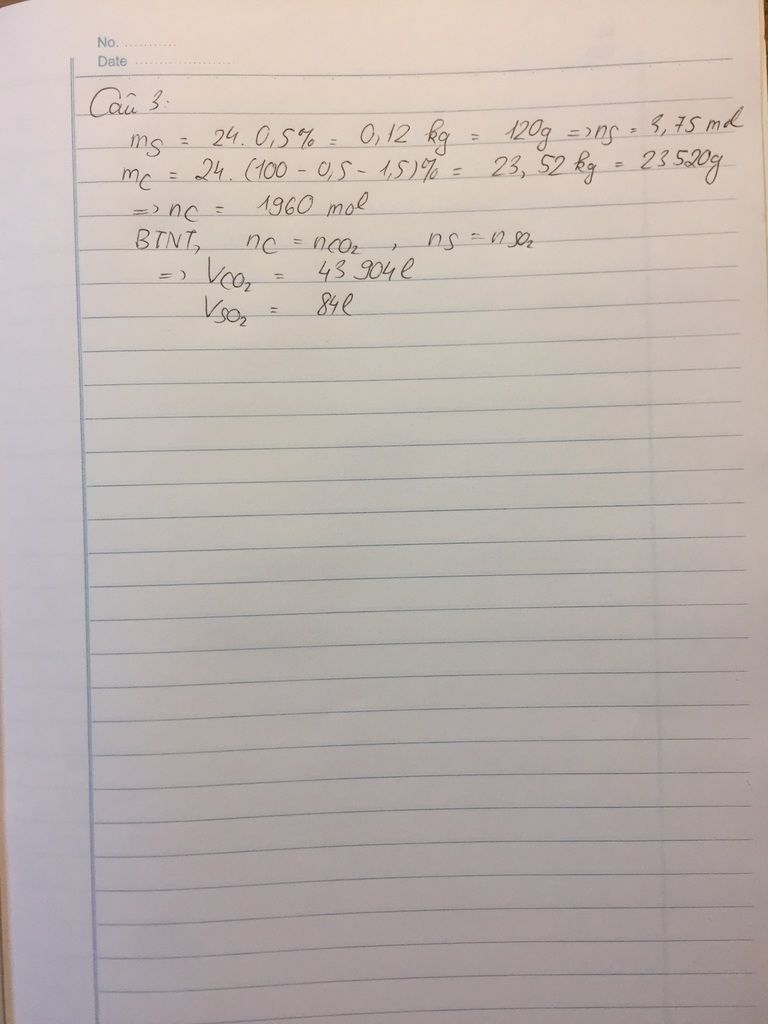 No. ...........
Date .....................
Câu 3:
mS = 24. 0,5% = 0,12 kg = 120g => nS = 3,75 mol
mC = 24. (100 - 0,5 - 1,5)% = 23,52 kg = 23520g
=> nC = 1960 mol
BTNT, nC = nCO₂ , nS = nSO₂
=> VCO₂ = 43 904 l
VSO₂ = 84 l